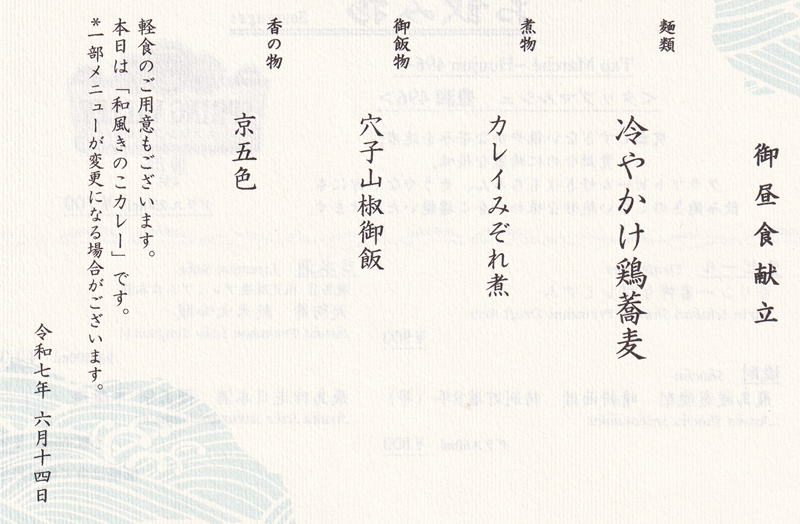 御昼食献立
麺類
冷やかけ鶏蕎麦
煮物
カレイみぞれ煮
御飯物
穴子山椒御飯
香の物
京五色
軽食のご用意もございます。
本日は「和風きのこカレー」です。
*一部メニューが変更になる場合がございます。
令和七年 六月十四日